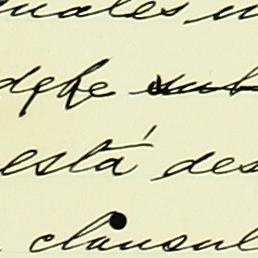 uales u
debe sub
está des
clausul